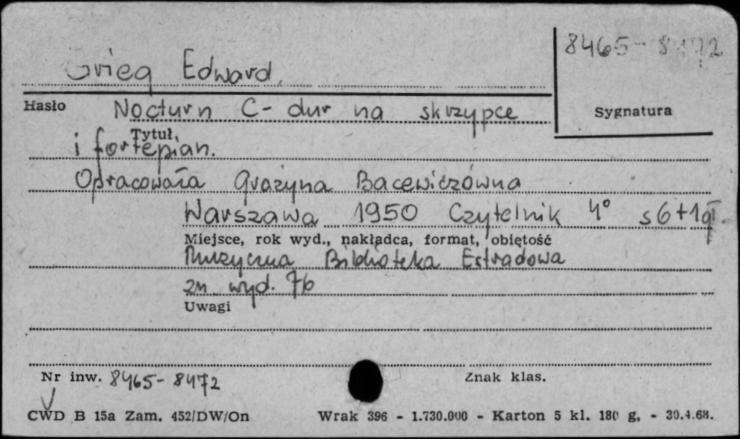 8465-8472
Grieg Edward.
Hasło Nocturn C-dur na skrzypce
Sygnatura
Tytuł
i fortepian.
Opracowała Grażyna Bacewiczówna
Warszawa 1950 Czytelnik 4° s 6+1 gł.
Miejsce, rok wyd., nakładca, format, objętość
Muzyczna Biblioteka Estradowa
zn. wyd. 76
Uwagi
Nr inw. 8465-8472 Znak klas.
CWD B 15a Zam. 452/DW/On Wrak 396 - 1.730.000 - Karton 5 kl. 180 g, - 30.4.68.